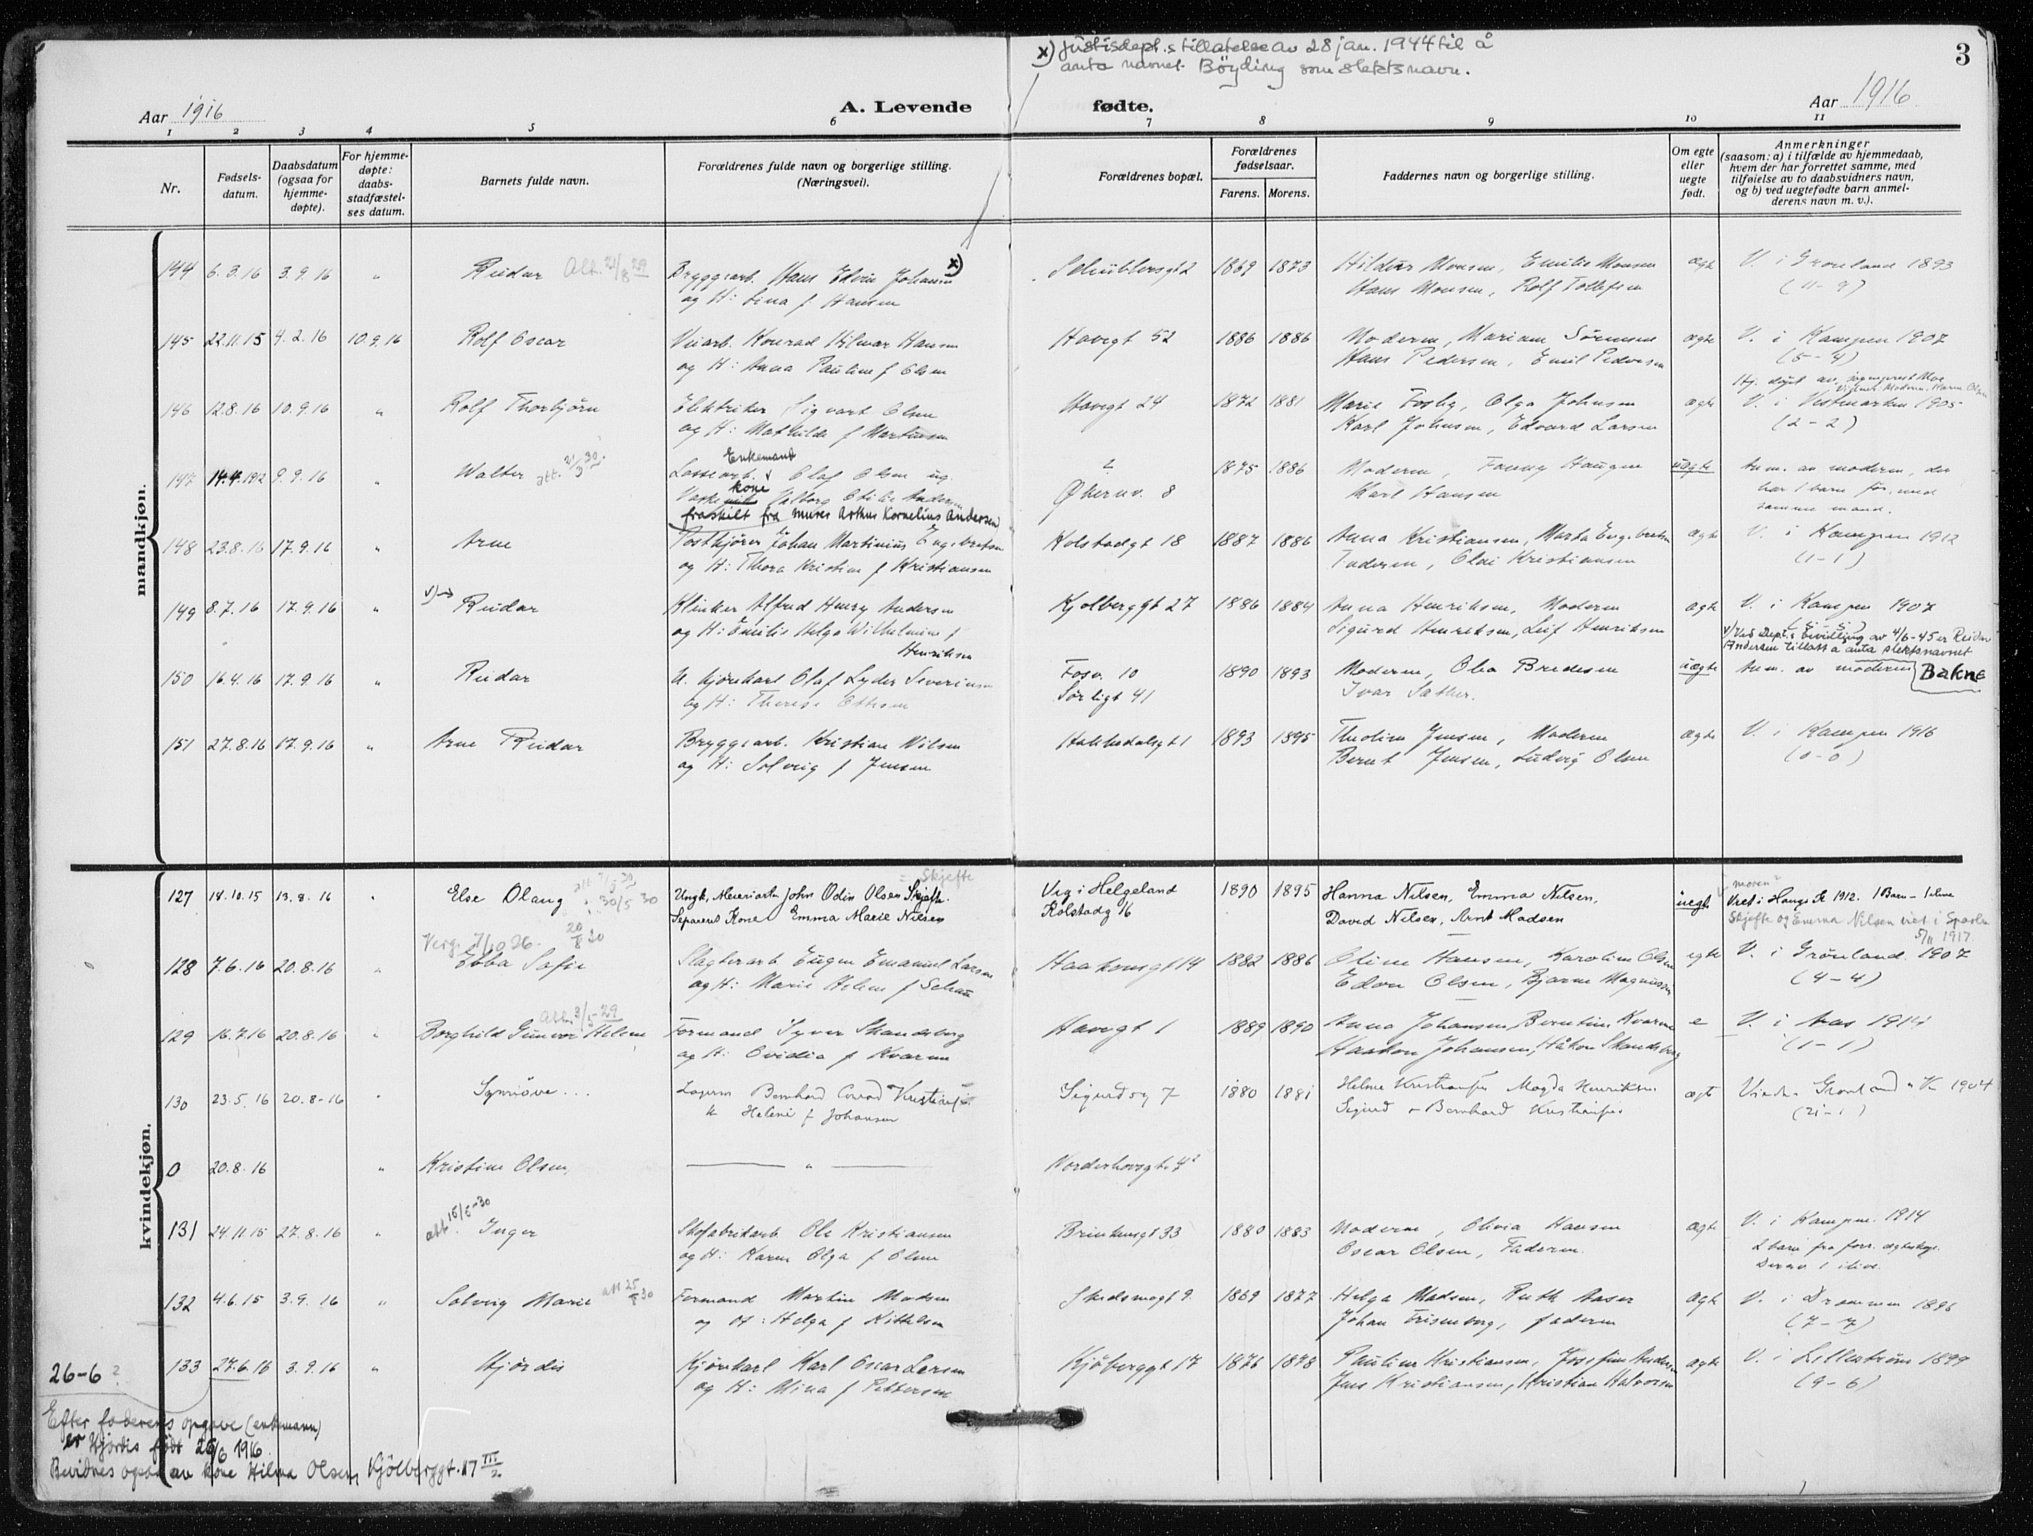 x) Justisdept.s tillatelse av 28 jan. 1944 til å
anta navnet Böyding som slektsnavn.
3
Aar 1916
A. Levende fødte.
Aar 1916
1 2 3 4 5 6 7 8 9 10 11
Nr.
Fødsels-
datum.
Daabsdatum
(ogsaa for
hjemme-
døpte).
For hjemme-
døpte:
daabs-
stadfæstel-
ses datum.
Barnets fulde navn.
Forældrenes fulde navn og borgerlige stilling.
(Næringsvei).
Forældrenes bopæl.
Forældrenes
fødselsaar.
Farens. Morens.
Faddernes navn og borgerlige stilling.
Om egte
eller
uegte
født.
Anmerkninger
(saasom: a) i tilfælde av hjemmedaab,
hvem der har forrettet samme, med
tilføielse av to daabsvidners navn,
og b) ved uegtefødte barn anmel-
derens navn m. v.).
mandkjøn.
144 6.3.16 3.9.16 " Reidar Att. 21/8 29 Bryggearb. Hans Edvin Johansen x) Schüblersgt 2 1869 1873 Hilda Monsen, Emilie Monsen ægte V. i Grønland 1893
og H: Lina f Hansen Hans Monsen, Rolf Tollefsen (11-9)
145 22.11.15 4.2.16 10.9.16 Rolf Oscar Veiarb. Konrad Hilmar Hansen Havegt 52 1886 1886 Moderen, Mariane Sørensen ægte V. i Kampen 1907
og H: Anna Pauline f Olsen Hans Pedersen, Emil Pedersen (5-4)
Hj. døpt av
146 12.8.16 10.9.16 " Rolf Thorbjörn Elektriker Sigvart Olsen Havegt 24 1872 1881 Marie Fosby, Olga Johnsen ægte V. i Vestmarken 1905
og H: Mathilde f Martinsen Karl Johnsen, Edvard Larsen (2-2)
Enkemand
147 14.4.1912 9.9.16 " Walter att. 21/3 30 Lossearb. Olaf Olsen og 2 1875 1886 Moderen, Fanny Haugen uægte Anm. av moderen, der
kone Valborg Otilie Andersen Økernv. 8 Karl Hansen har 1 barn før, med
fraskilt fra murer Arthur Kornelius Andersen samme mand.
148 23.8.16 17.9.16 " Arne Postkjører Johan Martinius Engebretsen Kolstadgt 18 1887 1886 Anna Kristiansen, Marta Engebretsen ægte V. i Kampen 1912
og H: Thora Kristine f Kristiansen Faderen, Olai Kristiansen (1-1)
149 8.7.16 17.9.16 " v) Reidar Klinker Alfred Henry Andersen Kjølberggt 27 1886 1884 Anna Henriksen, Moderen ægte V. i Kampen 1907
og H: Emilie Helga Wilhelmine f Sigurd Henriksen, Leif Henriksen (5-5)
Henriksen v) Ved dept.s bevilling av 4/6-45 er Reidar
Andersen tillatt å anta slektsnavnet
Bakne
150 16.4.16 17.9.16 " Reidar U. kjørekarl Olaf Lyder Severinsen Fosv. 10 1890 1893 Moderen, Olea Bredesen uægte Anm. av moderen
og H: Therese Ottesen Sørligt 41 Ivar Sæther.
151 27.8.16 17.9.16 " Arne Reidar Bryggearb. Kristian Nilsen 1893 1895 Theoline Jensen, Moderen ægte V. i Kampen 1916
og H: Solveig f Jensen Bernt Jensen, Ludvig Olsen (0-0)
kvindekjøn.
127 18.10.15 13.8.16 " Else Olaug 30/5 30 Ungk. Meieriarb. John Odin Olsen Skjefte Skjefte Veg i Helgeland 1890 1895 Hanna Nilsen, Emma Nilsen, uegt moren?
Separert Kone Emma Marie Nilsen Kolstadg 16 David Nilsen, Arnt Madsen Viet i Haugs K 1912. 1 Barn - 1 live
Skjefte og Emma Nilsen viet i Sparbu
5/11 1917
Verg. 7/10 26. 20/8 30
128 7.6.16 20.8.16 " Ebba Sofie Slagterarb Eugen Emanuel Larsen Haakonsgt 14 1882 1886 Oline Hansen, Karoline Olsen egte V. i Grønland 1907
og H: Marie Helene f Schau Edvin Olsen, Bjarne Magnussen (4-4)
Att. 3/5 29
129 16.7.16 20.8.16 " Borghild Gunvor Helene Formand Syver Skandsberg Havegt 1 1889 1890 Anna Johansen, Berntine Kvarme e V. i Aas 1914
og H: Ovidia f Kvarme Haakon Johansen, Håkon Skandsberg (1-1)
130 23.5.16 20.8-16 " Synnöve ... Bernhard Conrad Kristiansen Sigurdsg 7 1880 1881 Helene Kristiansen Magda Henriksen ægt Viede Grønland K 1904
Helene f Johansen Sigurd Bernhard Kristiansen (2-1)
0 20.8.16 " Kristine Olsen, " Norderhovsgt 4
131 24.11.15 27.8.16 " att. 15/5-30 Inger Skofabrikarb Ole Kristiansen Brinkensgt 33 1880 1883 Moderen, Olivia Hansen ægte V. i Kampen 1914
og H: Karen Olga f Olsen Oscar Olsen, Faderen. 2 barn fra forr. ægteskap.
Derav 1 i live.
132 4.6.15 3.9.16 " Solveig Marie att 25/8 30 Formand Martin Madsen Skedsmogt 9. 1869 1877 Helga Madsen, Ruth Aaser ægte V. i Drammen 1896
og H: Helga f Kittelsen Johan Frisenborg, faderen (7-7)
133 27.6.16 3.9.16 " Hjørdis Kjørekarl Karl Oscar Larsen Kjølberggt 17 1876 1878 Pauline Kristiansen, Josefine Andersen ægte V. i Lillestrøm 1899
og H: Mina f Pettersen Jens Kristiansen, Kristian Halvorsen (9-6)
26-6?
Efter faderens opgave (enkemann)
er Hjørdis født 26/6 1916
Bevidnes også av kone Hilma Olsen, Kjölberggt. 17 III/2